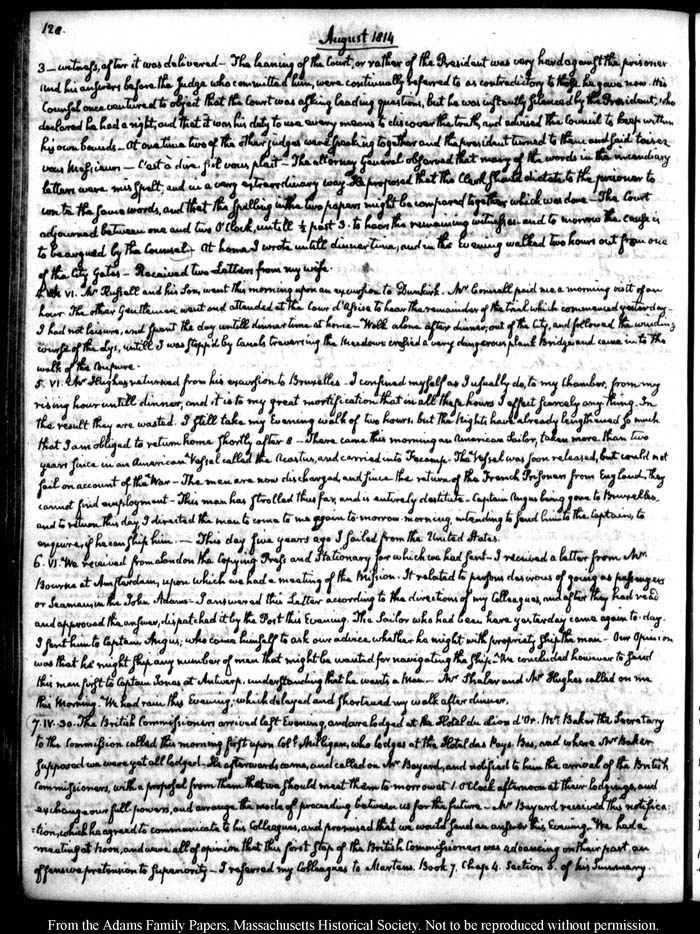 128.
August 1814
3 — witness, after it was delivered — The leaning of the Court, or rather of the President was very hard against the prisoner
and his answers before the Judge who committed him, were continually referred to as contradictory to those he gave now. His
Counsel once ventured to object that the Court was asking leading questions, but he was instantly silenced by the President, who
declared he had a right, and that it was his duty to use every means to discover the truth, and advised the Council to keep within
his own bounds — At one time two of the other judges were speaking together and the president turned to them and said taisez
vous Messieurs — C'est à dire, s'il vous plait — The attorney General observed that many of the words in the incendiary
letters were mis spelt, and in a very extraordinary way. He proposed that the Clerk should dictate to the prisoner to
write the same words, and that the spelling in the two papers might be compared together which was done — The Court
adjourned between one and two O'Clock, untill ½ past 3. to hear the remaining witnesses and to morrow the cause is
to be argued by the Counsel — At home I wrote untill dinner time, and in the Evening walked two hours out from one
of the City Gates — Received two Letters from my wife.
4. VI. Mr Russell and his Son, went this morning upon an excursion to Dunkirk. Mr Connell paid me a morning visit of an
hour. The other Gentlemen went and attended at the Cour d'Assise to hear the remainder of the trial which commenced yesterday —
I had not leisure, and spent the day untill dinner time at home — Walk alone after dinner, out of the City, and followed the winding
course of the Lys, untill I was stopp'd by Canals traversing the Meadows crossed a very dangerous plank Bridge and came in to the
walk of the Coupure.
5. VI. Mr Hughes returned from his excursion to Bruxelles — I confined myself as I usually do, to my Chamber, from my
rising hour untill dinner, and it is to my great mortification that in all these hours I effect scarcely any thing. In
the result they are wasted. I still take my Evening walk of two hours, but the Nights have already lengthened so much
that I am obliged to return home shortly after 8 — There came this morning an American Sailor, taken more than two
years since in an American Vessel called the Acastus, and carried into Fecamp. The Vessel was soon released, but could not
sail on account of the War — The men are now discharged, and since the return of the French Prisoners from England, they
cannot find employment — This man has strolled thus far, and is entirely destitute — Captain Angus being gone to Bruxelles,
and to return this day I directed the man to come to me again to-morrow morning, intending to send him to the Captain, to
enquire if he can ship him. — This day five years ago I sailed from the United States.
6. VI. We received from London the Copying Press and Stationary for which we had sent — I received a letter from Mr
Bourne at Amsterdam, upon which we had a meeting of the Mission — It related to persons desirous of going as passengers
or Seamen in the John Adams — I answered this Letter according to the directions of my Colleagues, and after they had read
and approved the answer, dispatched it by the Post this Evening. The Sailor who had been here yesterday came again to-day.
I sent him to Captain Angus, who came himself to ask our advice whether he might with propriety ship the man — Our Opinion
was that he might ship any number of men that might be wanted for navigating the Ship — We concluded however to send
this man first to Captain Jones at Antwerp, understanding that he wants a Man — Mr Shaler and Mr Hughes called on me
this Morning. We had rain this Evening, which delayed and shortened my walk after dinner.
7. IV. 30. The British Commissioners arrived last Evening, and are lodged at the Hotel du Lion d'Or. Mr Baker the Secretary
to the Commission called this morning first upon Coll Milligan, who lodges at the Hotel des Pays-Bas, and where Mr Baker
supposed we were yet all lodged. He afterwards came, and called on Mr Bayard, and notified to him the arrival of the British
Commissioners, with a proposal from them that we should meet them to morrow at 1 O'Clock afternoon at their lodgings, and
exchange our full powers, and arrange the mode of proceeding between us for the future — Mr Bayard received this notifica-
=tion, which he agreed to communicate to his Colleagues, and promised that we would send an answer this Evening — We had a
meeting at Noon, and were all of opinion that this first step of the British Commissioners was advancing on their part an
offensive pretension to superiority — I referred my Colleagues to Martens. Book 7. Chap 4. Section 3. of his Summary.
From the Adams Family Papers, Massachusetts Historical Society. Not to be reproduced without permission.